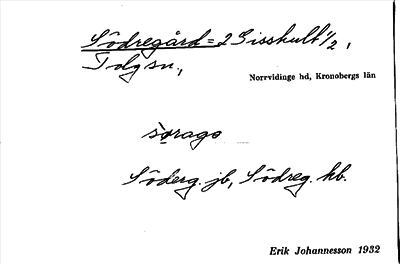 Södregård = 2 Gisshult 1/2,
Tolg sn,
Norrvidinge hd, Kronobergs län
sørago
Söderg. jb, Södreg. hb.
Erik Johannesson 1932